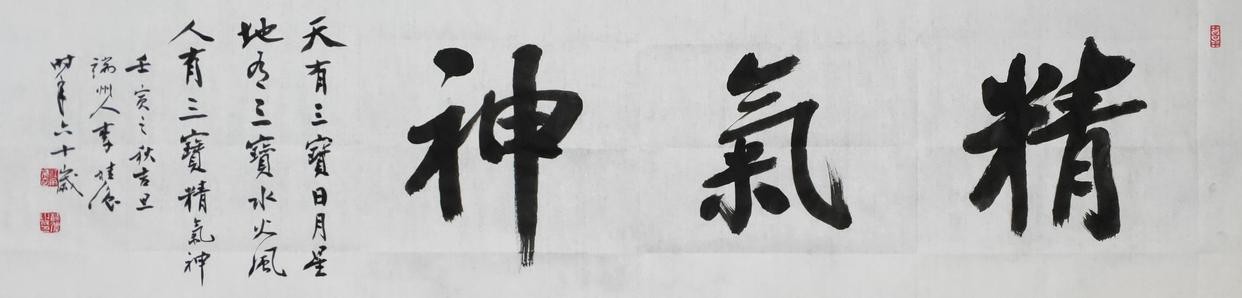 精氣神
天有三寶日月星
地有三寶水火風
人有三寶精氣神
壬寅之秋吉旦
端州人李
時年六十歲